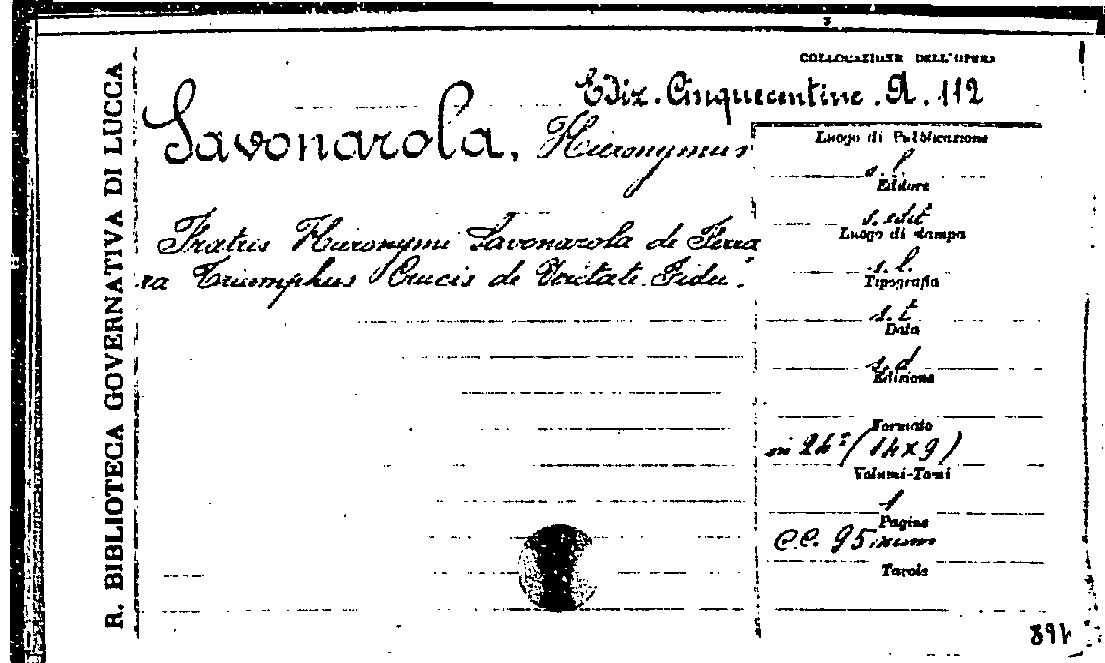 R. BIBLIOTECA GOVERNATIVA DI LUCCA
COLLOCAZIONE DELL'OPERA
Ediz. Cinquecentine. A. 112
Savonarola, Hieronymus
Fratris Hieronymi Savonarola de Ferra
ra Triumphus Crucis de Veritate Fidei.
Luogo di Pubblicazione
s. l.
Editore
s. edit
Luogo di stampa
s. l.
Tipografia
s. t
Data
s. d
Edizione
Formato
in 24° (14x9)
Volumi-Tomi
1
Pagine
c.c. 95
Tavole